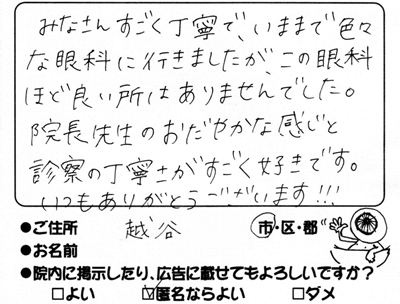 みなさんすごく丁寧で、いままで色々
な眼科に行きましたが、この眼科
ほど良い所はありませんでした。
院長先生のおだやかな感じと
診察の丁寧さがすごく好きです。
いつもありがとうございます!!!
●ご住所 越谷 市・区・郡
●お名前
●院内に掲示したり、広告に載せてもよろしいですか?
□よい ☑匿名ならよい □ダメ